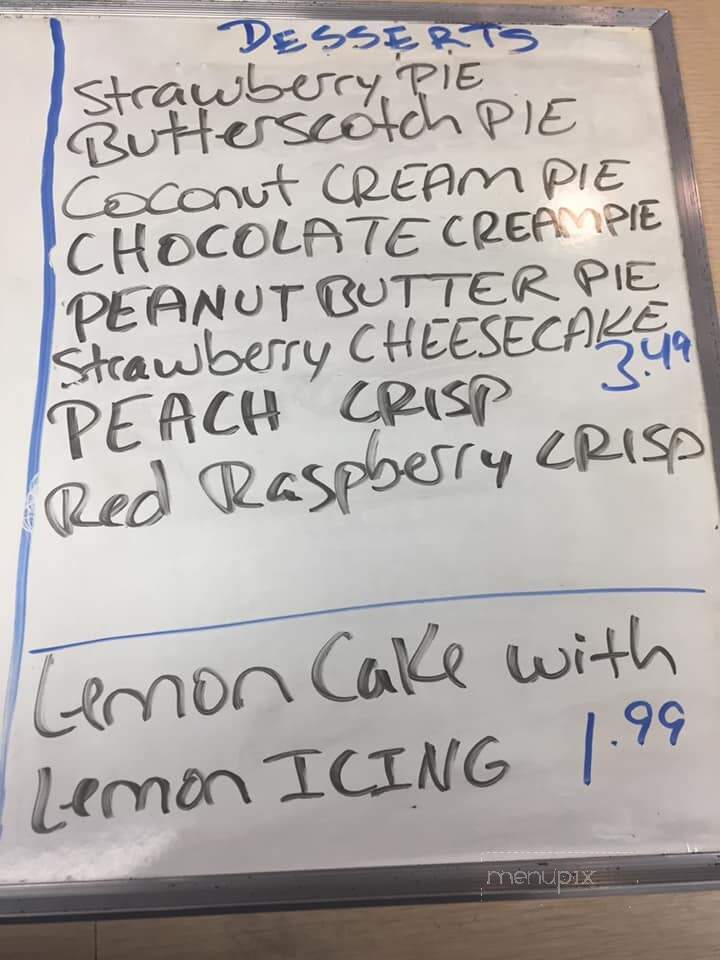 DESSERTS
Strawberry PIE
Butterscotch PIE
Coconut CREAM PIE
CHOCOLATE CREAM PIE
PEANUT BUTTER PIE
Strawberry CHEESECAKE
3.49
PEACH CRISP
Red Raspberry CRISP
Lemon Cake with
Lemon ICING 1.99
menupix